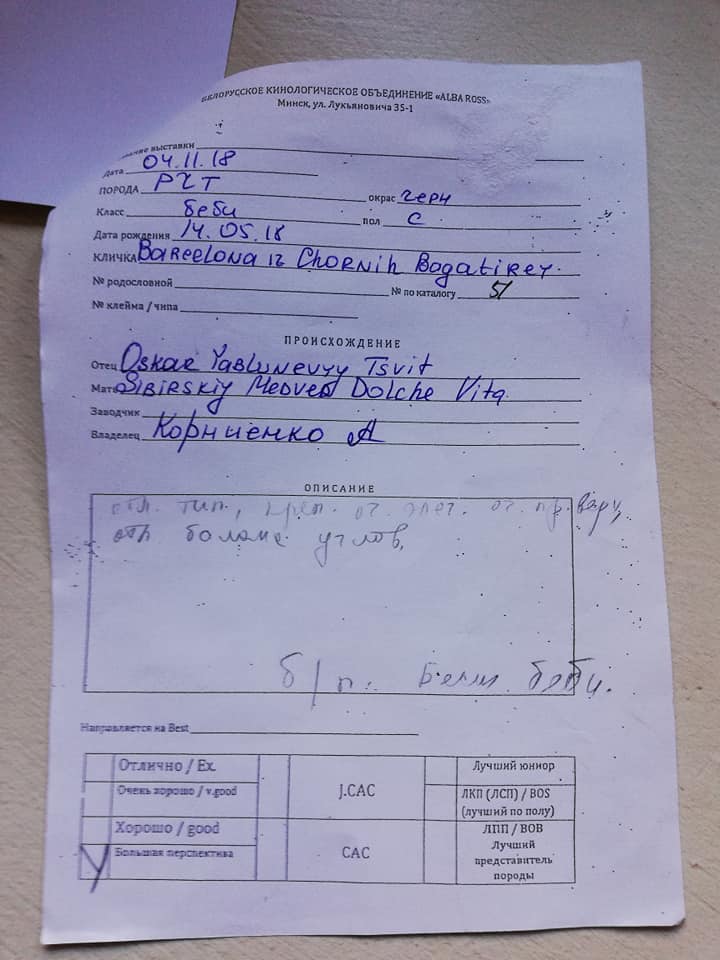 БЕЛОРУССКОЕ КИНОЛОГИЧЕСКОЕ ОБЪЕДИНЕНИЕ «ALBA ROSS»
Минск, ул. Лукьяновича 35-1
выставки
Дата 04.11.18
ПОРОДА РЧТ окрас черн
Класс беби пол С
Дата рождения 14.05.18
КЛИЧКА Barcelona iz Chornih Bogatirey.
№ родословной № по каталогу 51
№ клейма / чипа
ПРОИСХОЖДЕНИЕ
Отец Oskar Yablunevyy Tsvit
Мать Sibirskiy Medved Dolche Vita
Заводчик
Владелец Корниенко А
ОПИСАНИЕ
отл. тип, креп. оч. элег. оч. пр.
отл баланс углов,
б/п. беби.
Направляется на Best
Отлично / Ex. J.CAC Лучший юниор
Очень хорошо / v.good ЛКП (ЛСП) / BOS
(лучший по полу)
Хорошо / good CAC ЛПП / BOB
Большая перспектива Лучший
представитель
породы